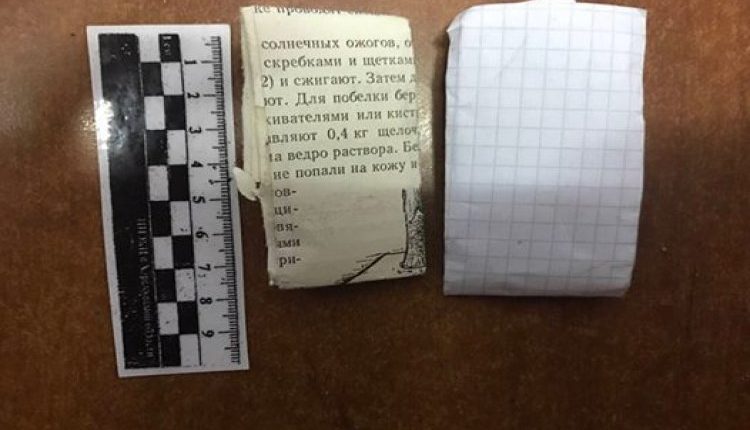 1см
1
2
3
4
5
6
7
8
9
ке проводят
солнечных ожогов, о
скребками и щеткам
2) и сжигают. Затем д
ют. Для побелки бер
кивателями или кист
авляют 0,4 кг щелоч
на ведро раствора. Бе
ие попали на кожу и
ов-
ци-
вя-
ами
ри-